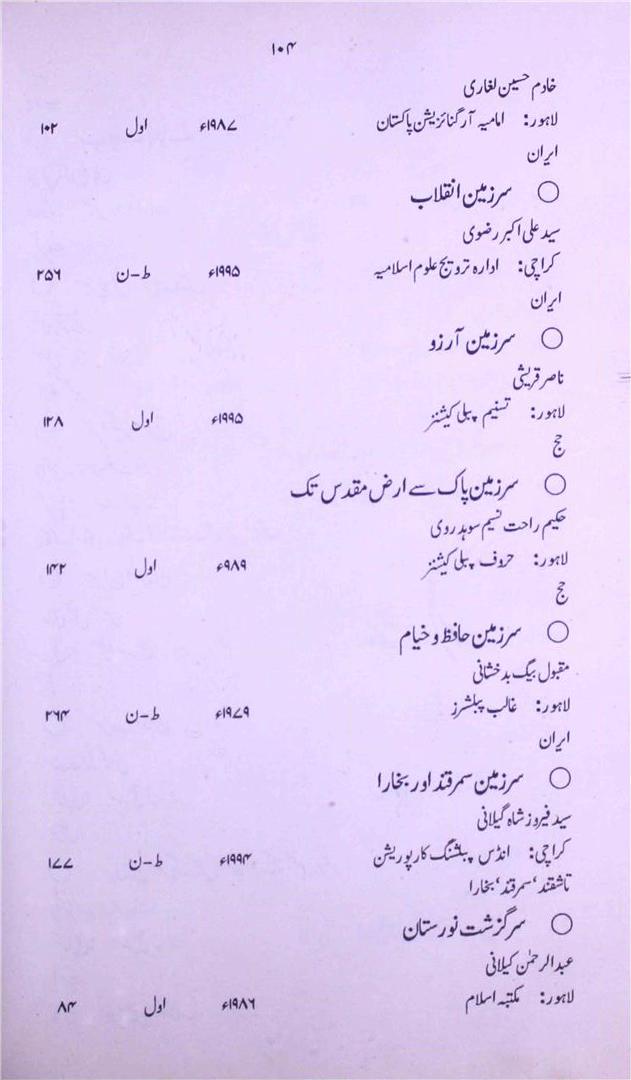 ۱۰۴
خادم حسین لغاری
لاہور: امامیہ آرگنائزیشن پاکستان ۱۹۸۷ء اول ۱۰۲
ایران
○ سرزمین انقلاب
سید علی اکبر رضوی
کراچی: ادارہ ترویج علوم اسلامیہ ۱۹۹۵ء ط-ن ۲۵۶
ایران
○ سرزمین آرزو
ناصر قریشی
لاہور: تسنیم پبلی کیشنز ۱۹۹۵ء اول ۱۲۸
حج
○ سرزمین پاک سے ارض مقدس تک
حکیم راحت نسیم سوہدروی
لاہور: حروف پبلی کیشنز ۹۸۹ء اول ۱۴۲
حج
○ سرزمین حافظ و خیام
مقبول بیگ بدخشانی
لاہور: غالب پبلشرز ۱۹۷۹ء ط-ن ۲۶۴
ایران
○ سرزمین سمرقند اور بخارا
سید فیروز شاہ گیلانی
کراچی: انڈس پبلشنگ کارپوریشن ۱۹۹۴ء ط-ن ۱۷۷
تاشقند‘ سمرقند‘ بخارا
○ سرگزشت نورستان
عبدالرحمٰن کیلانی
لاہور: مکتبہ اسلام ۱۹۸۶ء اول ۸۴